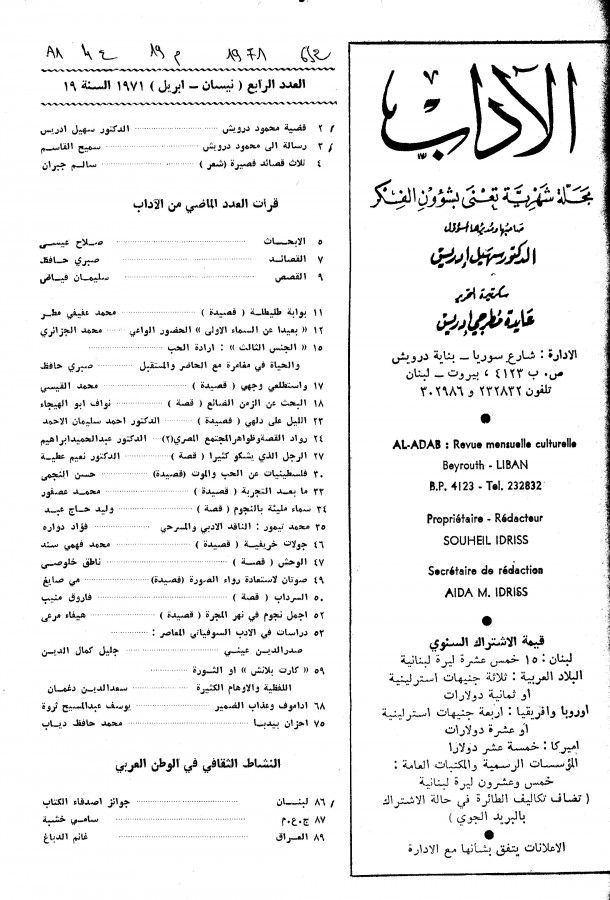 الآداب
مجلة شهرية تعنى بشؤون الفكر
صاحبها ومديرها المسؤول
الدكتور سهيل إدريس
سكرتيرة التحرير
عايدة مطرجي إدريس
الادارة : شارع سوريا - بناية درويش
ص. ب ٤١٢٣ ، بيروت - لبنان
تلفون ٢٣٢٨٣٢ و ٣٠٢٩٨٦
AL-ADAB : Revue mensuelle culturelle
Beyrouth - LIBAN
B.P. 4123 - Tel. 232832
Propriétaire - Rédacteur
SOUHEIL IDRISS
Secrétaire de rédaction
AIDA M. IDRISS
قيمة الاشتراك السنوي
لبنان : ١٥ خمس عشرة ليرة لبنانية
البلاد العربية : ثلاثة جنيهات استرلينية
او ثمانية دولارات
اوروبا وافريقيا : اربعة جنيهات استرلينية
او عشرة دولارات
اميركا : خمسة عشر دولارا
المؤسسات الرسمية والمكتبات العامة :
خمس وعشرون ليرة لبنانية
( تضاف تكاليف الطائرة في حالة الاشتراك
بالبريد الجوي )
الاعلانات يتفق بشأنها مع الادارة
م ١٩ ١٩٧١
العدد الرابع ( نيسان - ابريل ) ١٩٧١ السنة ١٩
٢ قضية محمود درويش الدكتور سهيل ادريس
٣ رسالة الى محمود درويش سميح القاسم
٤ ثلاث قصائد قصيرة (شعر ) سالم جبران
قرأت العدد الماضي من الآداب
٥ الابحاث صلاح عيسى
٧ القصائد صبري حافظ
٩ القصص سليمان فياض
١١ بوابة طليطلة ( قصيدة ) محمد عفيفي مطر
١٢ « بعيدا عن السماء الاولى » الحضور الواعي محمد الجزائري
١٥ « الجنس الثالث » : ارادة الحب
والحياة في مغامرة مع الحاضر والمستقبل صبري حافظ
١٧ واستطلعي وجهي ( قصيدة ) محمد القيسي
١٨ البحث عن الزمن الضائع ( قصة ) نواف ابو الهيجاء
٢٣ الليل على دلهي ( قصيدة ) الدكتور احمد سليمان الاحمد
٢٤ رواد القصة وظواهر المجتمع المصري (٢) الدكتور عبدالحميد ابراهيم
٢٧ الرجل الذي يشكو كثيرا ( قصة ) الدكتور نعيم عطية
٣٠ فلسطينيات عن الحب والموت (قصيدة) حسن النجمي
٣٣ ما بعد التجربة ( قصيدة ) محمد عصفور
٣٤ سماء مليئة بالنجوم ( قصة ) وليد حاج عبد
٣٥ محمد تيمور : الناقد الادبي والمسرحي فؤاد دواره
٤٦ جولات خريفية ( قصيدة ) محمد فهمي سند
٤٧ الوحش ( قصة ) ناطق خلوصي
٤٩ صوتان لاستعادة رواء الصورة (قصيدة) مي صايغ
٥٠ السرداب ( قصة ) فاروق منيب
٥٢ اجمل نجوم في نهر المجرة ( قصيدة ) هيفاء مرعي
٥٣ دراسات في الادب السوفياتي المعاصر :
صدرالدين عيني جليل كمال الدين
٥٩ « كارت بلانش » او الثورة
اللفظية والاوهام الكثيرة سعدالدين دغمان
٦٨ اداموف وعذاب الضمير يوسف عبدالمسيح ثروة
٧٥ احزان بيدبا محمد حافظ دياب
النشاط الثقافي في الوطن العربي
٨٦ لبنان جوائز اصدقاء الكتاب
٨٧ ج.ع.م سامي خشبة
٨٩ العراق غانم الدباغ